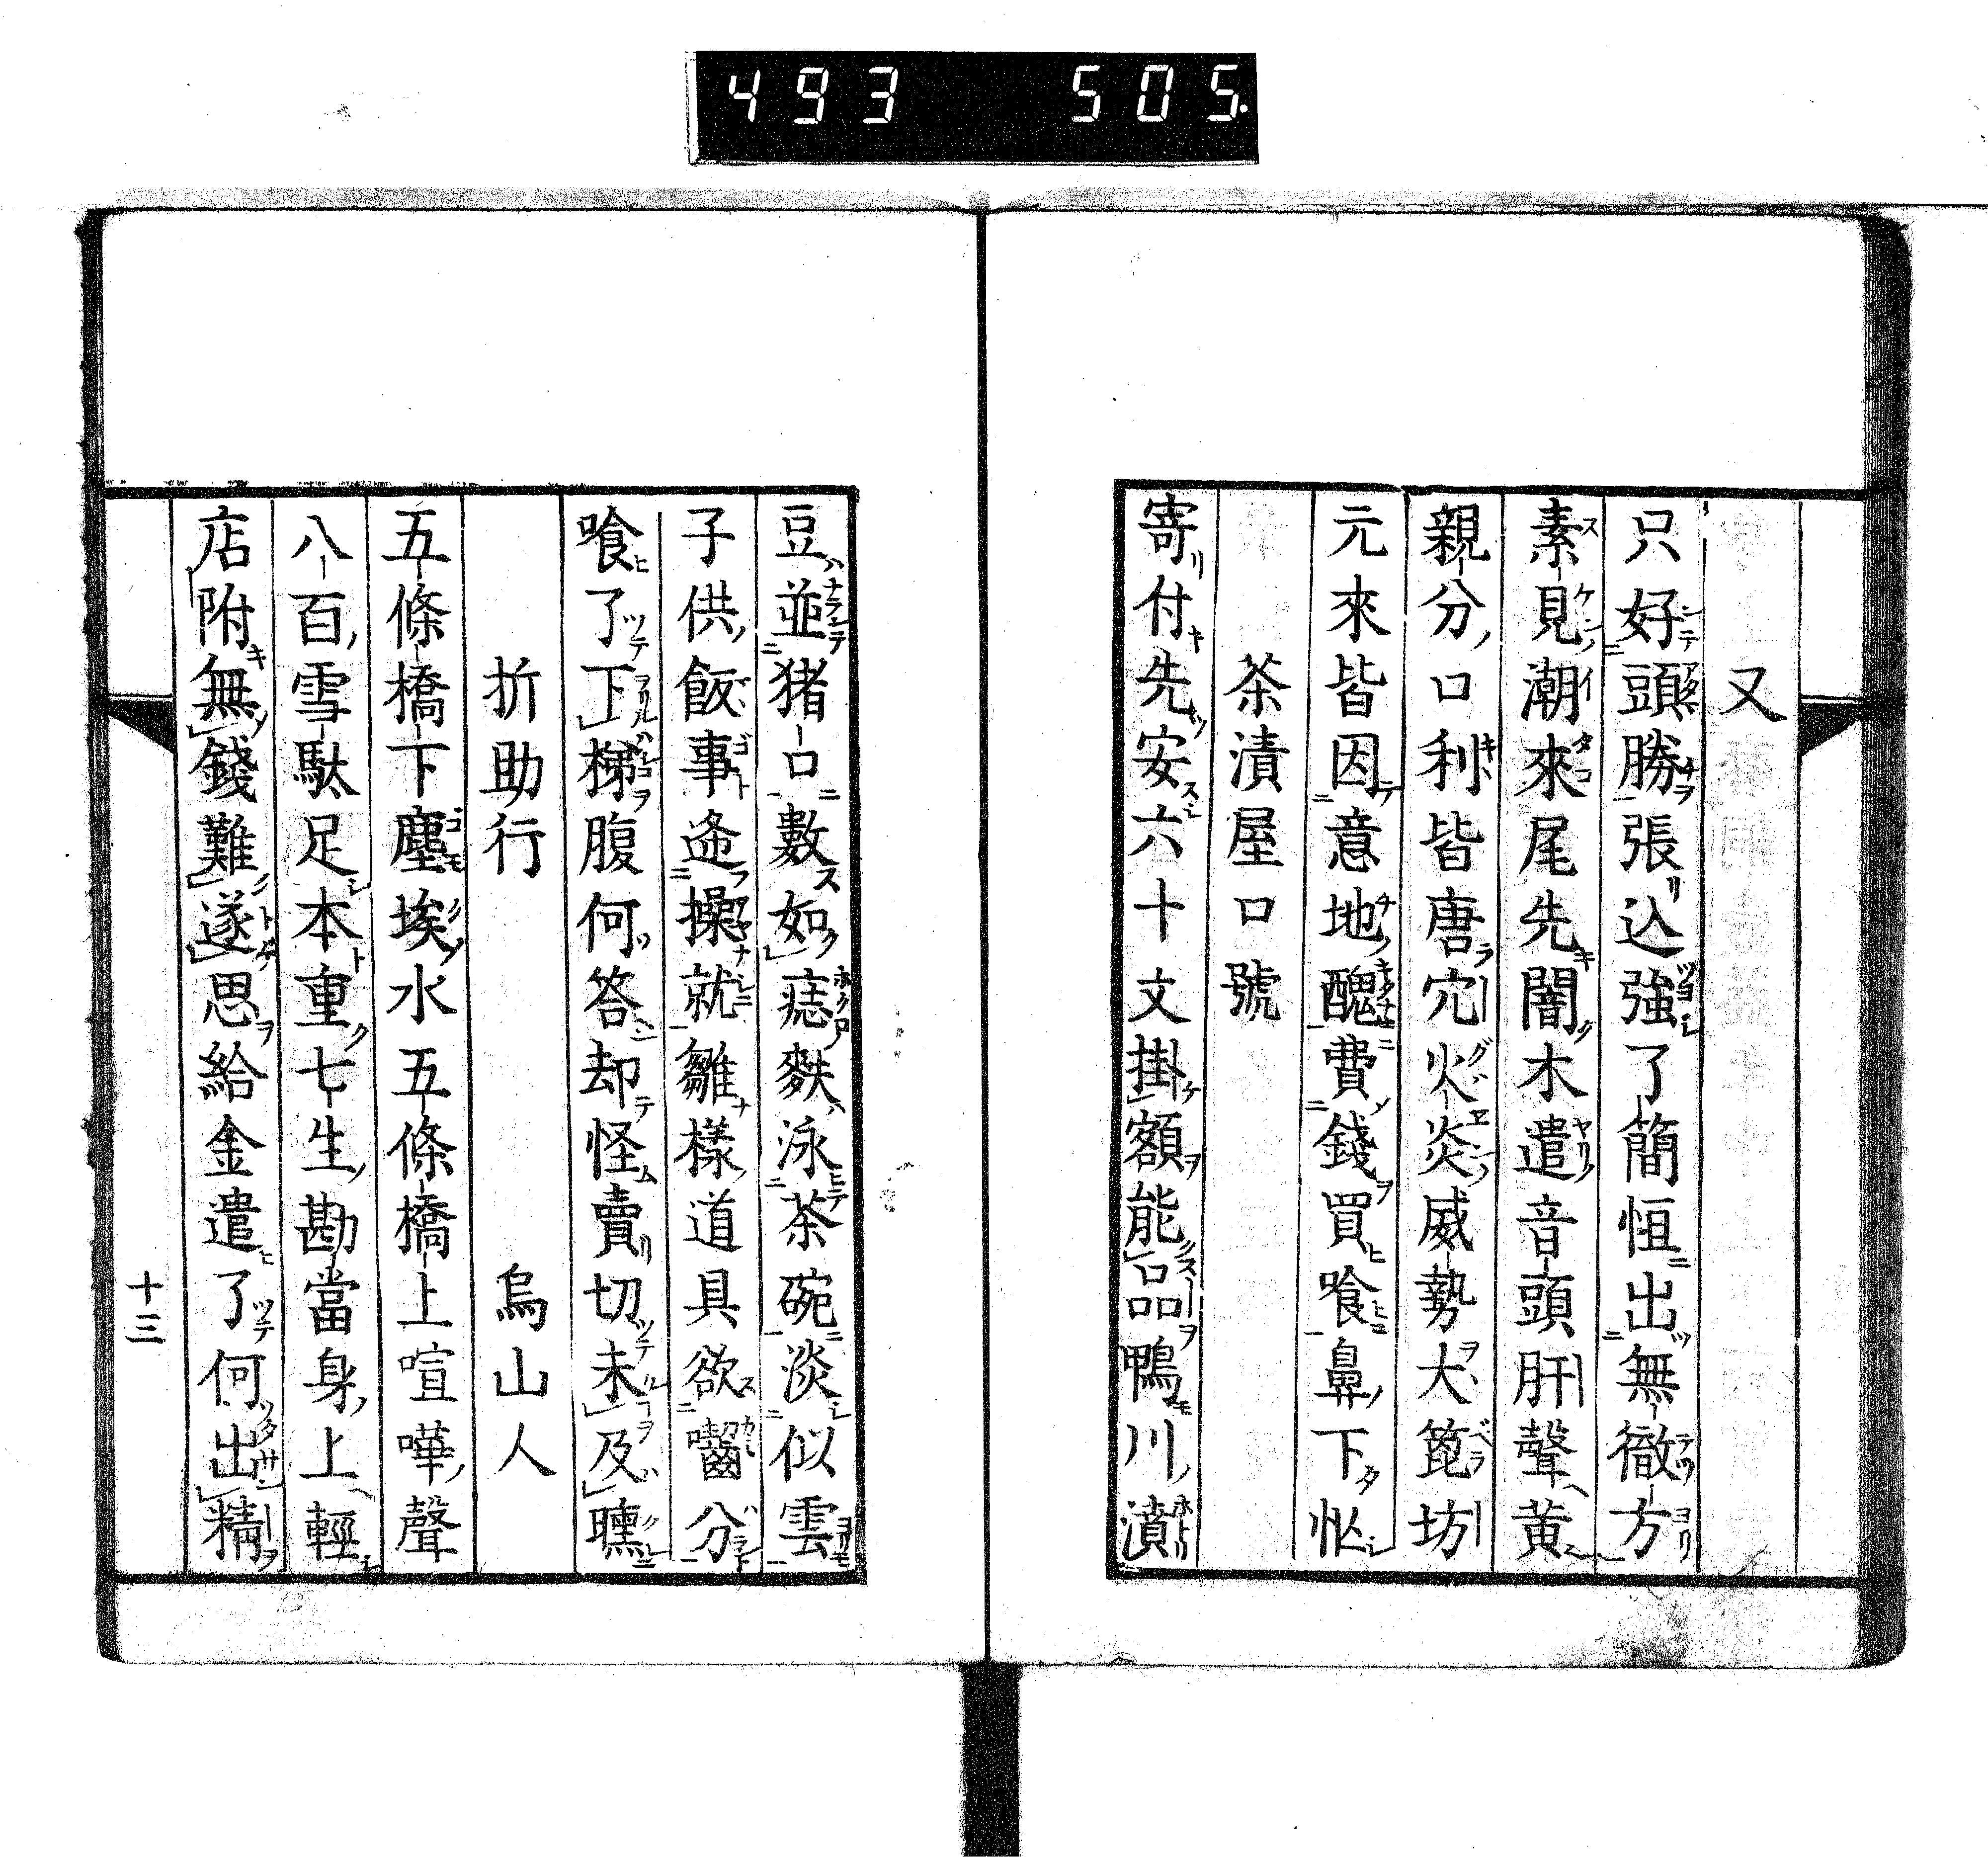 493 505.
又
只好頭勝張込強了簡恒出無徹方
素見潮來尾先闇木遣音頭肝聲黄
親分口利皆唐穴火炎威勢大箆坊
元來皆因意地醜費錢買喰鼻下忙
茶漬屋口號
寄付先安六十文掛額能品鴨川濆
豆並猪口數如痣麩泳茶碗淡似雲
子供飯事逄操就雛樣道具欲囓分
喰了下梯腹何答却怪賣切未及曛
折助行 烏山人
五條橋下塵埃水五條橋上喧嘩聲
八百雪駄足本重七生勘當身上輕
店附無錢難遂思給金遣了何出精
十三